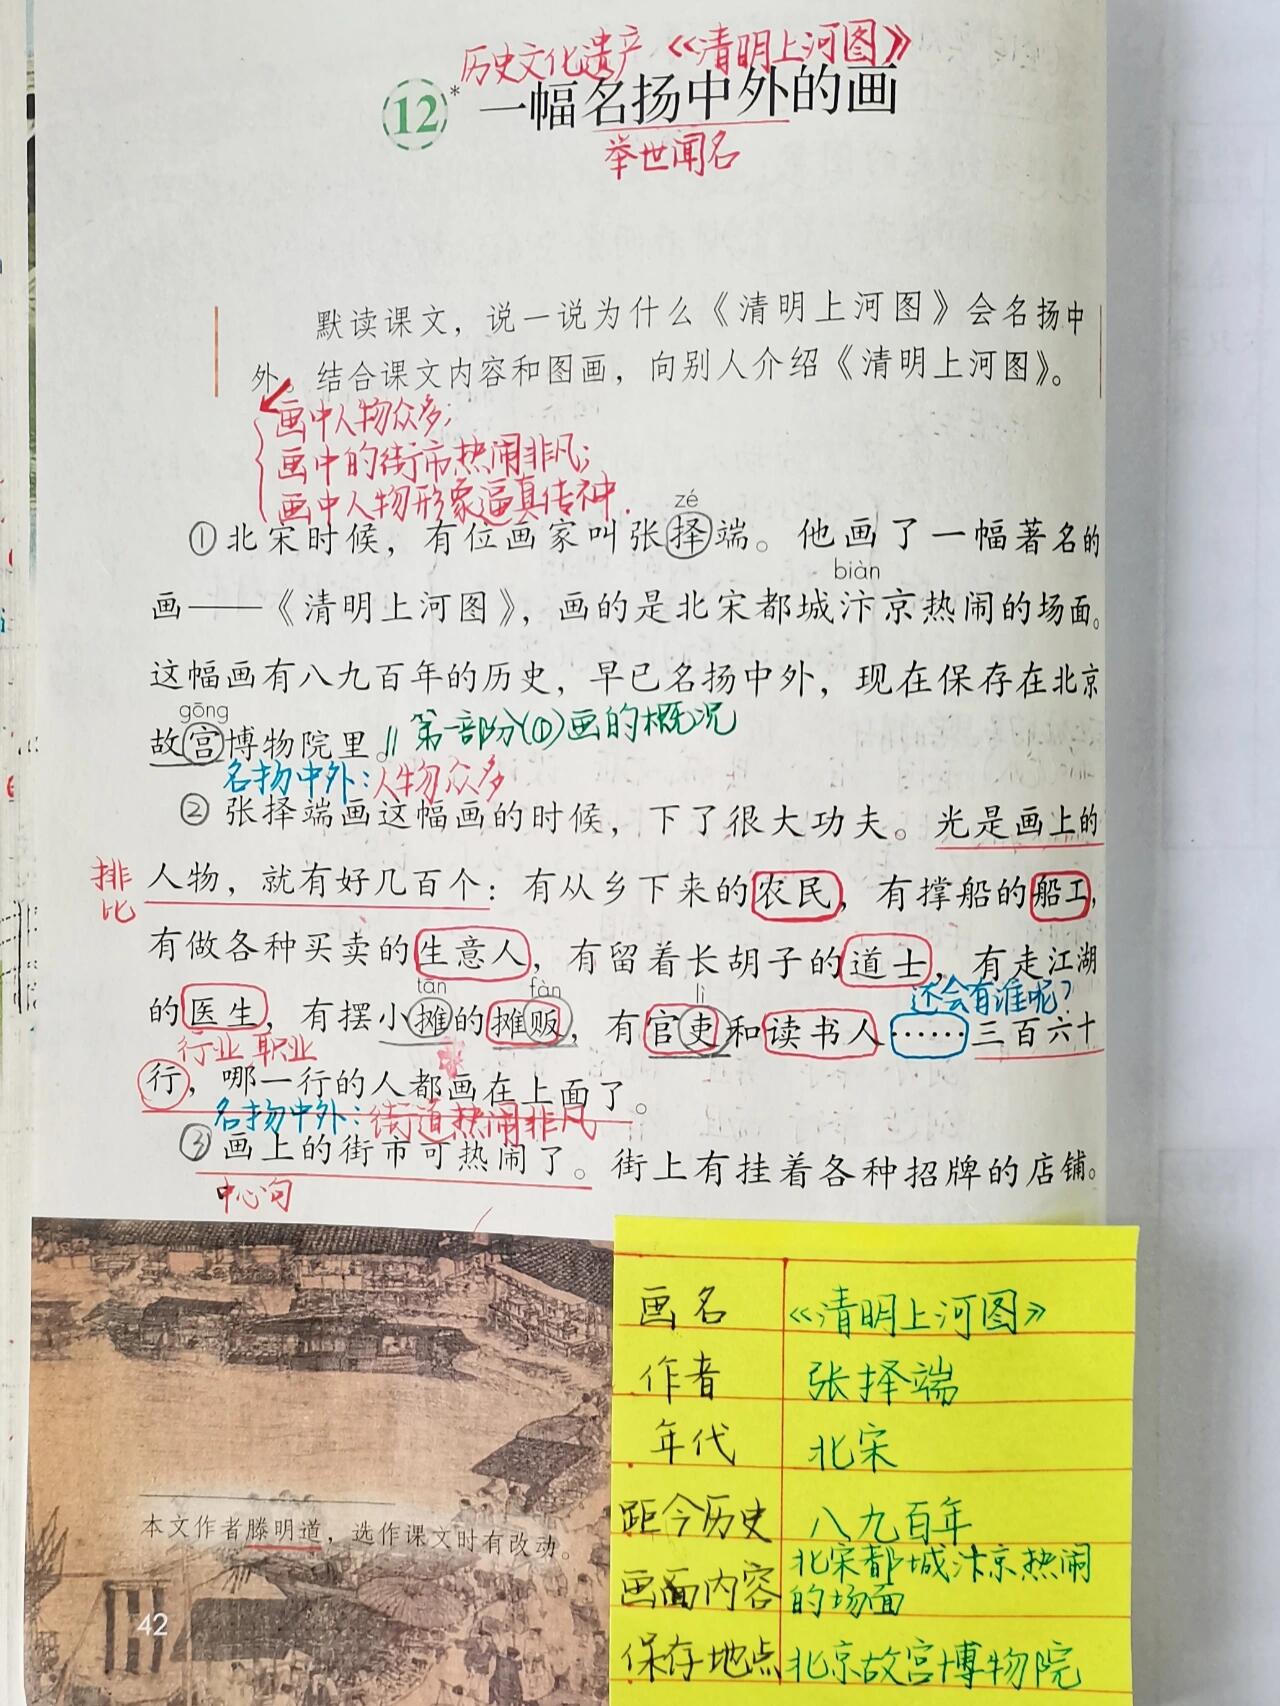 历史文化遗产《清明上河图》
12* 一幅名扬中外的画
举世闻名
默读课文，说一说为什么《清明上河图》会名扬中
外。结合课文内容和图画，向别人介绍《清明上河图》。
画中人物众多；
画中的街市热闹非凡；
画中人物形象逼真传神.
zé
①北宋时候，有位画家叫张择端。他画了一幅著名的
biàn
画——《清明上河图》，画的是北宋都城汴京热闹的场面。
这幅画有八九百年的历史，早已名扬中外，现在保存在北京
gōng
故宫博物院里。∥第一部分(①)画的概况
名扬中外：人物众多
②张择端画这幅画的时候，下了很大功夫。光是画上的
排比
人物，就有好几百个：有从乡下来的农民，有撑船的船工，
有做各种买卖的生意人，有留着长胡子的道士，有走江湖
tān fàn lì 还会有谁呢？
的医生，有摆小摊的摊贩，有官吏和读书人……三百六十
行业 职业
行，哪一行的人都画在上面了。
名扬中外：街道热闹非凡
③画上的街市可热闹了。街上有挂着各种招牌的店铺。
中心句
本文作者滕明道，选作课文时有改动。
42
画名 《清明上河图》
作者 张择端
年代 北宋
距今历史 八九百年
画面内容 北宋都城汴京热闹
的场面
保存地点 北京故宫博物院